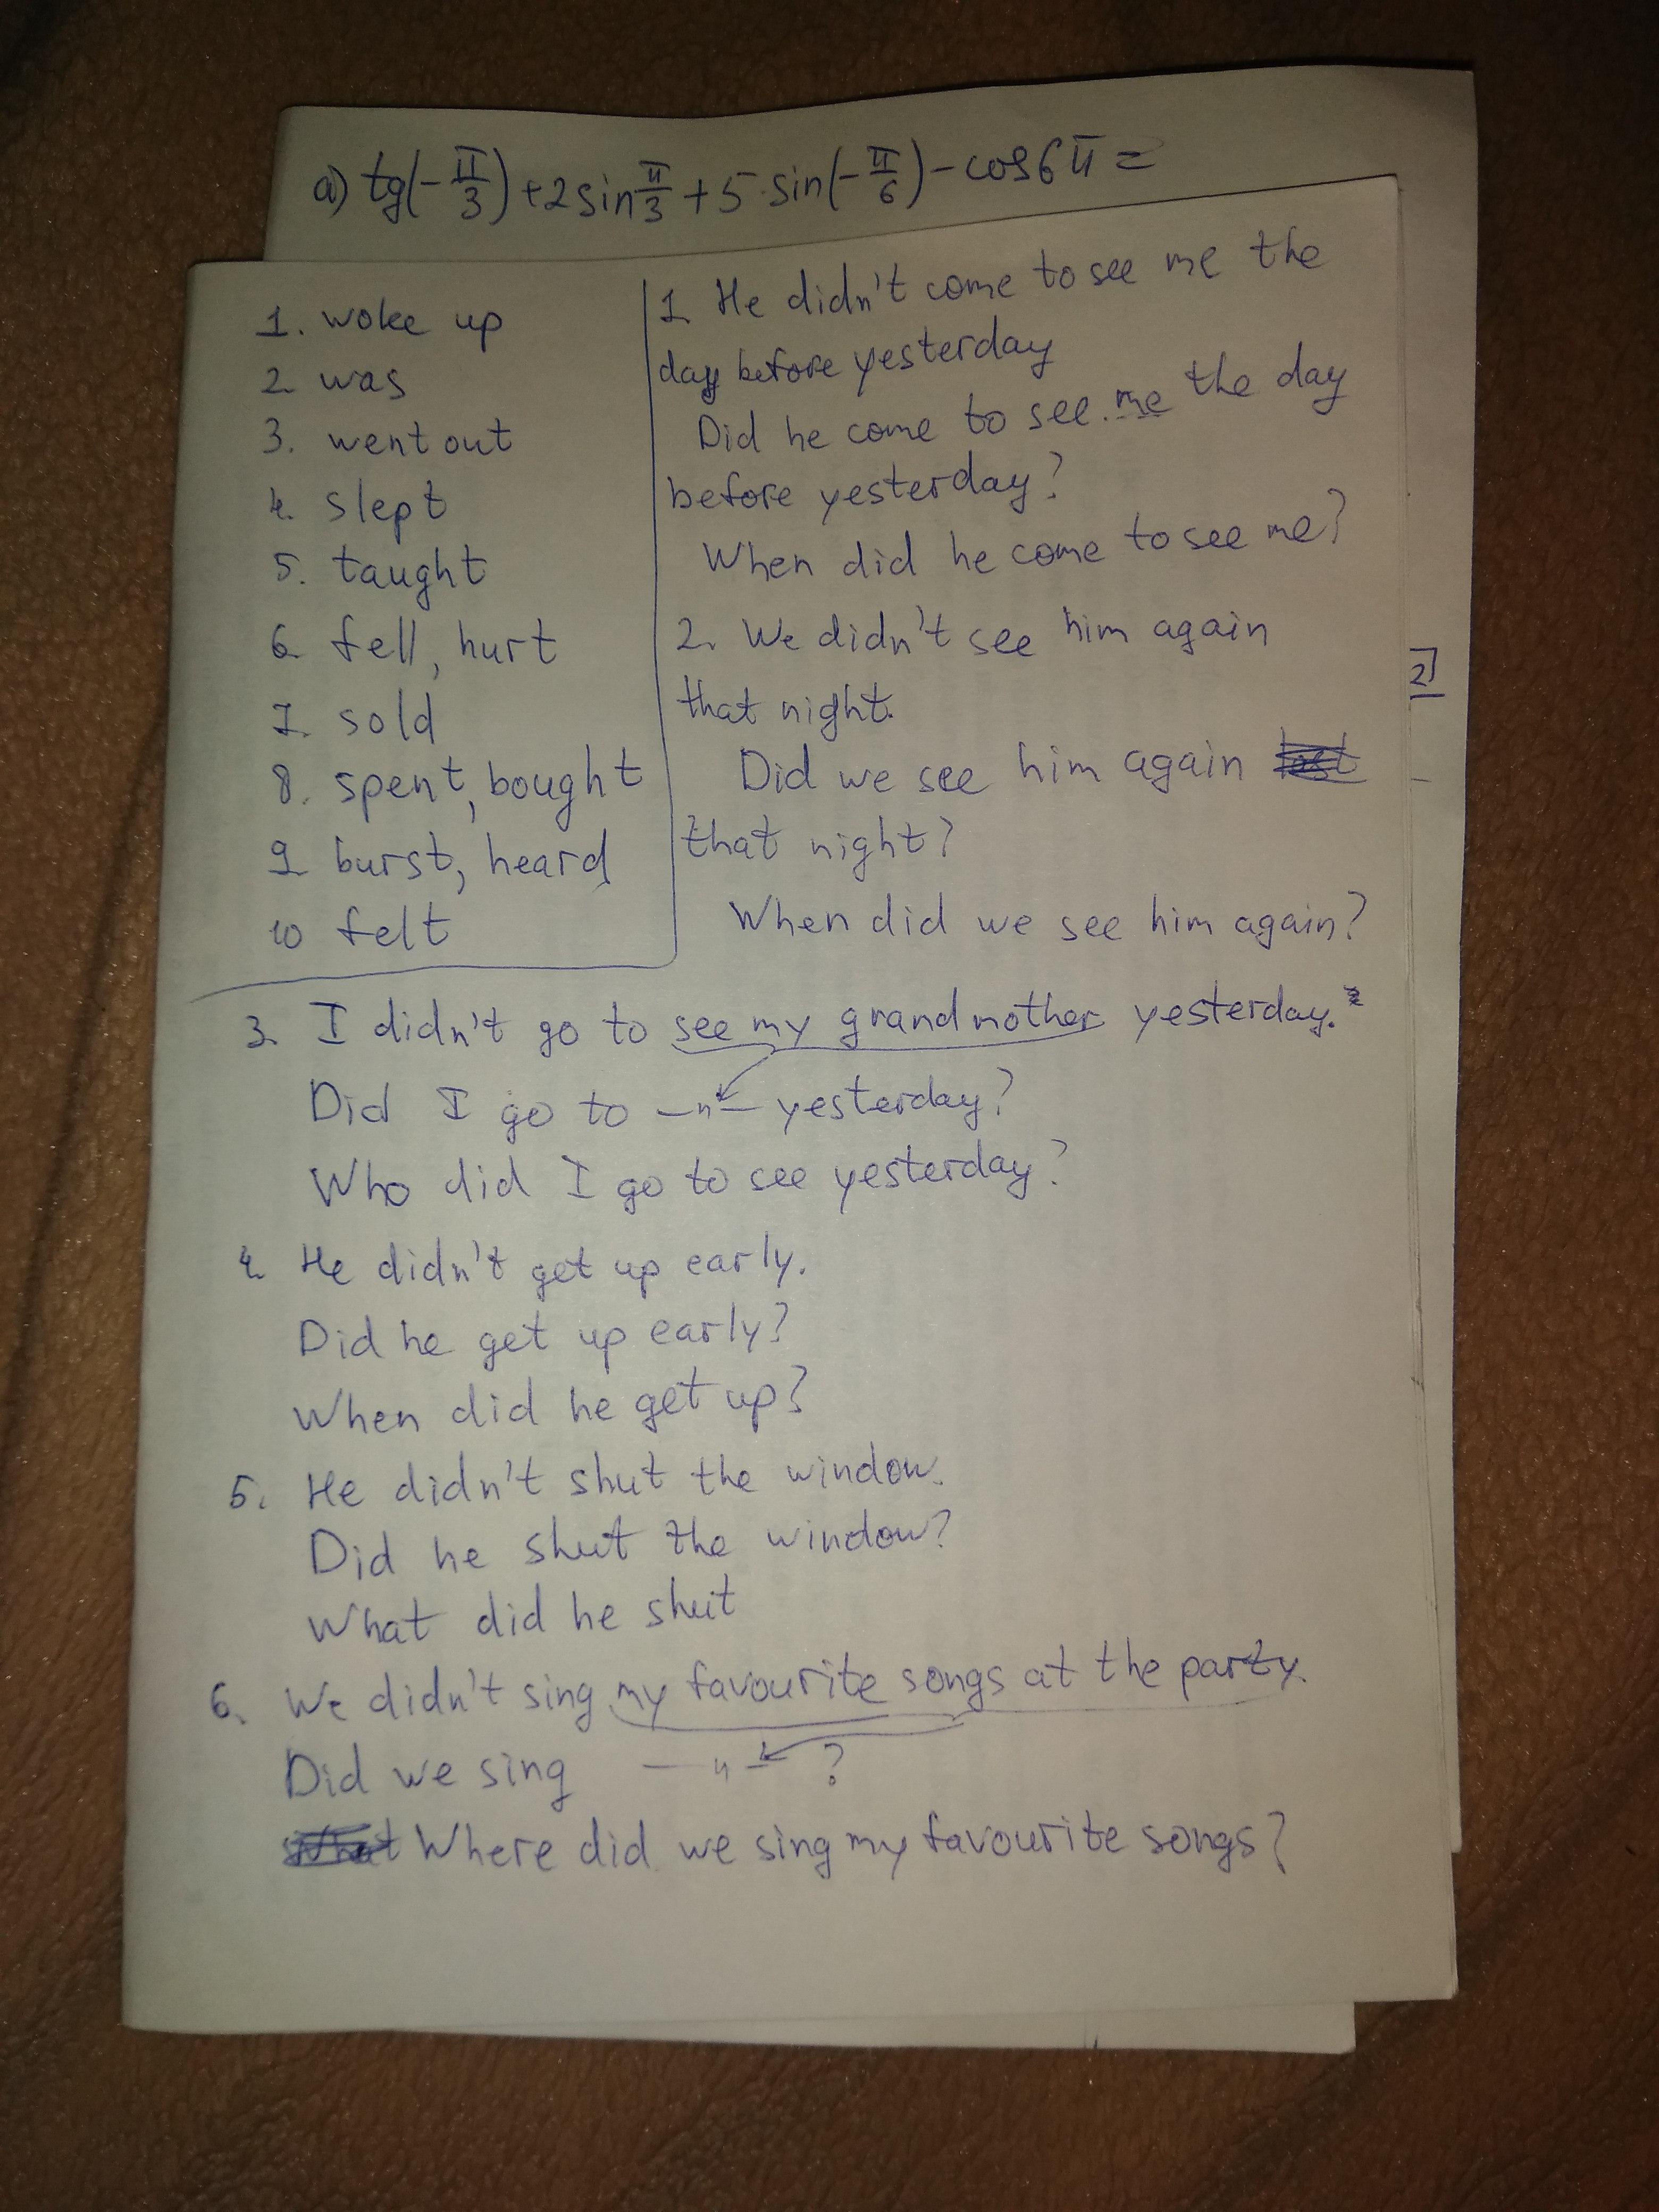 a) tg(-π/3)+2sin π/3+5·sin(-π/6)-cos6π=
1. woke up
2 was
3. went out
4. slept
5. taught
6 fell, hurt
7. sold
8. spent, bought
9 burst, heard
10 felt
1 He didn't come to see me the
day before yesterday
Did he come to see me the day
before yesterday?
When did he come to see me?
2. We didn't see him again
that night.
Did we see him again
that night?
When did we see him again?
3 I didn't go to see my grandmother yesterday.
Did I go to —"— yesterday?
Who did I go to see yesterday?
4 He didn't get up early.
Did he get up early?
When did he get up?
5. He didn't shut the window.
Did he shut the window?
What did he shut
6. We didn't sing my favourite songs at the party.
Did we sing —"— ?
Where did we sing my favourite songs?
2]